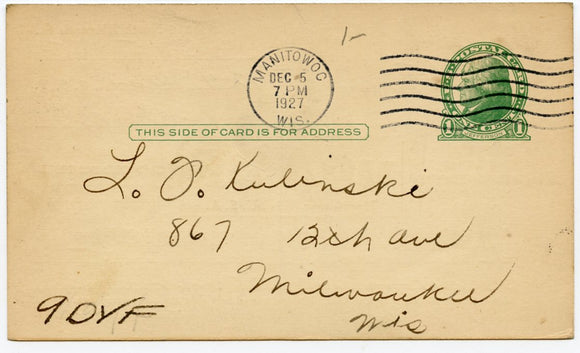 1-
MANITOWOC
DEC 5
7 PM
1927
WIS.
U.S. POSTAL CARD
1 JEFFERSON 1
THIS SIDE OF CARD IS FOR ADDRESS
L. P. Kulinski
867 12th ave
Milwaukee
Wis
9DVF